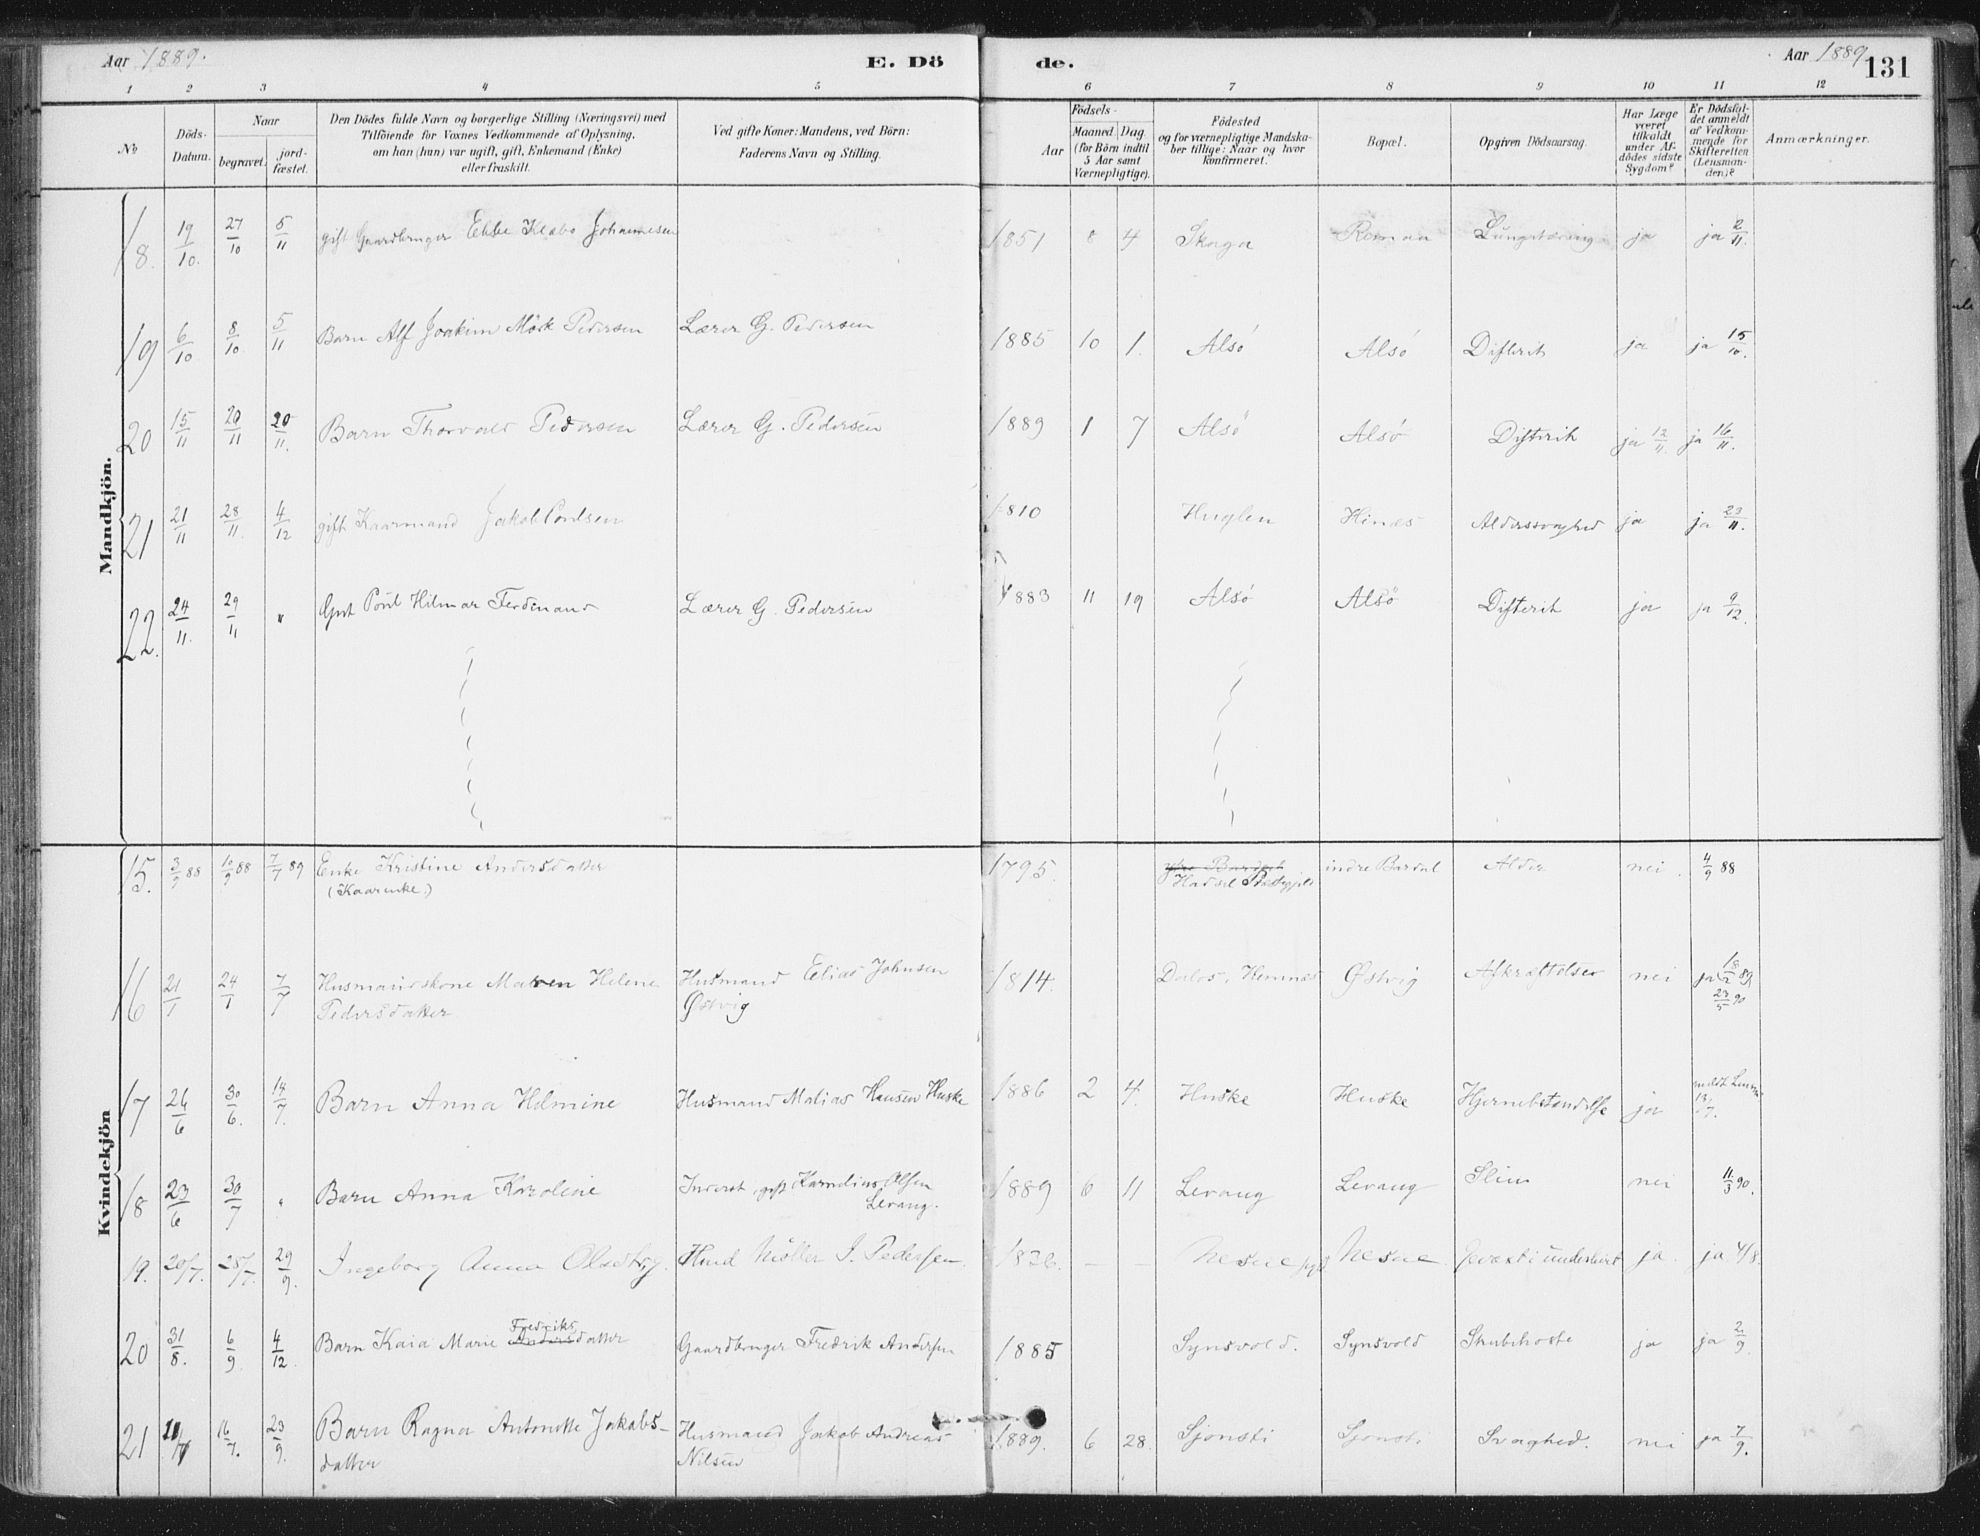 Aar 1889. E. Dö de. Aar 1889 131
1 2 3 4 5 6 7 8 9 10 11 12
№ Döds-Datum. Naar begravet. jord-fæstet. Den Dödes fulde Navn og borgerlige Stilling (Næringsvei) med Tilföiende for Voxnes Vedkommende af Oplysning, om han (hun) var ugift, gift, Enkemand (Enke) eller fraskilt. Ved gifte Koner: Mandens, ved Börn: Faderens Navn og Stilling. Födsels- Aar Maaned. Dag. (for Börn indtil 5 Aar samt Værnepligtige). Födested og for værnepligtige Mandskaber tillige: Naar og hvor konfirmeret. Bopæl. Opgiven Dödsaarsag. Har Læge været tilkaldt under Afdödes sidste Sygdom? Er Dödsfaldet anmeldt af Vedkommende for Skifteretten (Lensmanden)? Anmærkninger.
Mandkjön.
18. 19/10. 27/10 5/11 gift Gaardbruger Johannesen 1851 8 4 Skaga ja ja 2/11.
19 6/10 8/10. 5/11 Barn Alf Joakim Mörk Pedersen Lærer G. Pedersen 1885 10 1. Alsö Alsö Difterit ja ja 15/10.
20 15/11 20/11 20/11. Barn Thorvald Pedersen Lærer G. Pedersen 1889 1 7 Alsö Alsö Difterit ja 12/11. ja 16/11.
21 21/11 28/11. 4/12 gift Kaarmand Jakob Poulsen 1810 Huglen Hinæs Alderssvaghed ja ja 23/11.
22. 24/11. 29/11 " Gut Poul Hilmar Ferdinand Lærer G. Pedersen 1883 11 19 Alsö Alsö Difterit ja ja 9/12.
Kvindekjön
15. 3/9 88 10/9 88 7/7 89 Enke Kristine Andersdatter 1795. Hadsel Præstegjeld indre Bardal Alder nei. 4/9 88
(Kaarenke.)
16 21/1 24/1 7/7 Husmandskone Maren Helene Husmand Elias Johnsen 1814. Dalos, Hemnæs Østvig Afkræftelse nei ja 18/2 89
Pedersdatter Østvig 23/5 90
17 26/6 30/6. 14/7. Barn Anna Helmine Husmand Matias Hansen Huske 1886 2 4. Huske Huske Hjernebetændelse ja meldt Lensm. 13/7.
18 23/6 30/7 " Barn Anna Karoline Inderst, gift Karnelius Olsen 1889 6 11 Levang Levang Slim nei 11/3 90.
Levang.
19. 20/7. 25/7. 29/9. Ingeborg Anna Olsdtr. Husmd Möller J. Pedersen 1836. — — Nesne pgd. Nesne Gevæxt i underlivet ja. ja 4/8.
20 31/8. 6/9. 4/12. Barn Kaia Marie Anders Fredriksdatter Gaardbruger Fredrik Andersen 1885 Synsvold. Synsvold Strubehoste ja ja 2/9.
21 11/7 16/7. 23/9. Barn Ragna Antonette Jakobs- Husmand Jakob Andreas 1889. 6 28. Sjonsti Sjonsti Svaghed. nei ja 7/9.
datter Nilsen